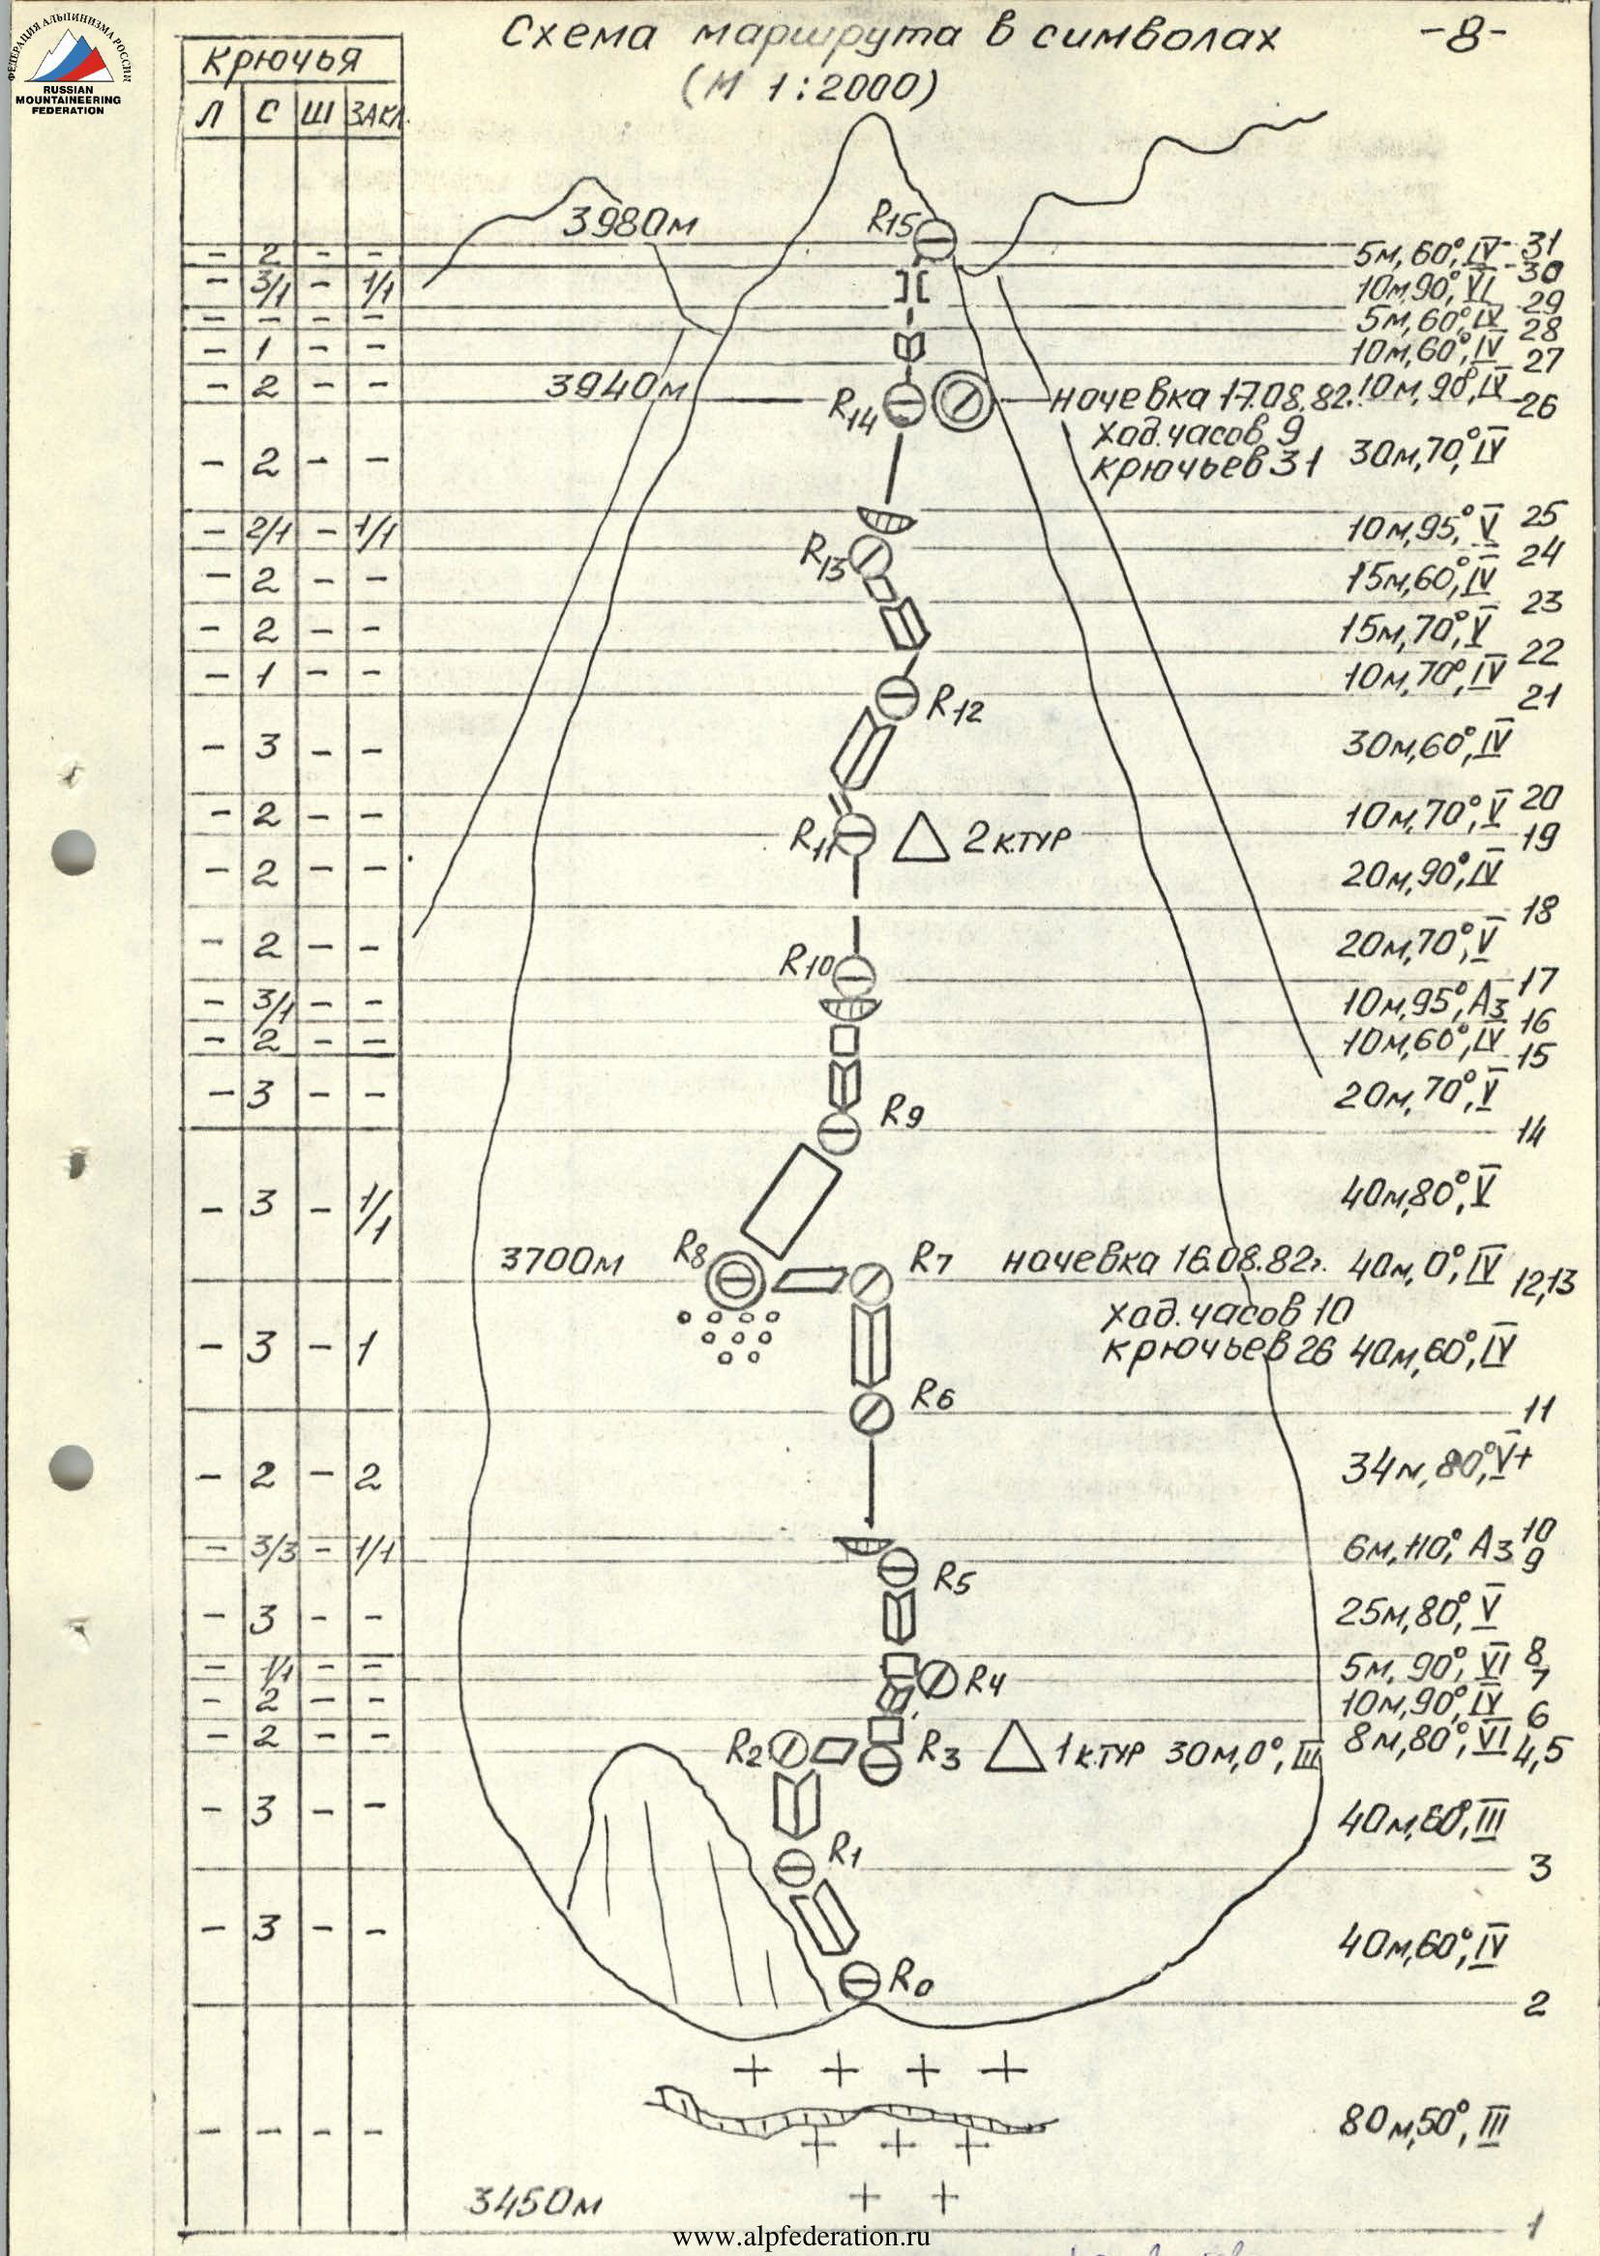 Схема маршрута в символах -8-
(М 1:2000)
ФЕДЕРАЦИЯ АЛЬПИНИЗМА РОССИИ
RUSSIAN
MOUNTAINEERING
FEDERATION
Крючья
Л С Ш ЗАКЛ.
3980м R15 31
- 2 - - 5м, 60°, IV 30
- 3/1 - 1/1 10м, 90°, VI 29
- - - - 5м, 60°, IV 28
- 1 - - 10м, 60°, IV 27
- 2 - - 3940м R14 ночевка 17.08.82. 10м, 90°, IV 26
ход. часов 9
- 2 - - крючьев 31 30м, 70°, IV
25
- 2/1 - 1/1 10м, 95°, V
R13 24
- 2 - - 15м, 60°, IV
23
- 2 - - 15м, 70°, V
22
- 1 - - 10м, 70°, IV
R12 21
- 3 - - 30м, 60°, IV
20
- 2 - - 10м, 70°, V
R11 2 к.тур 19
- 2 - - 20м, 90°, IV
18
- 2 - - 20м, 70°, V
R10 17
- 3/1 - - 10м, 95°, А3
16
- 2 - - 10м, 60°, IV
15
- 3 - - 20м, 70°, V
R9 14
- 3 - 1/1 40м, 80°, V
3700м R8 R7 ночевка 16.08.82г. 40м, 0°, IV 12,13
ход. часов 10
- 3 - 1 крючьев 26 40м, 60°, IV
R6 11
- 2 - 2 34м, 80°, V+
10
- 3/3 - 1/1 6м, 110°, А3
R5 9
- 3 - - 25м, 80°, V
8
- 1/1 - - 5м, 90°, VI
R4 7
- 2 - - 10м, 90°, IV
6
- 2 - - 8м, 80°, VI
R2 R3 1 к.тур 30м, 0°, III 4,5
- 3 - - 40м, 60°, III
R1 3
- 3 - - 40м, 60°, IV
R0 2
- - - - 80м, 50°, III
3450м
1
www.alpfederation.ru